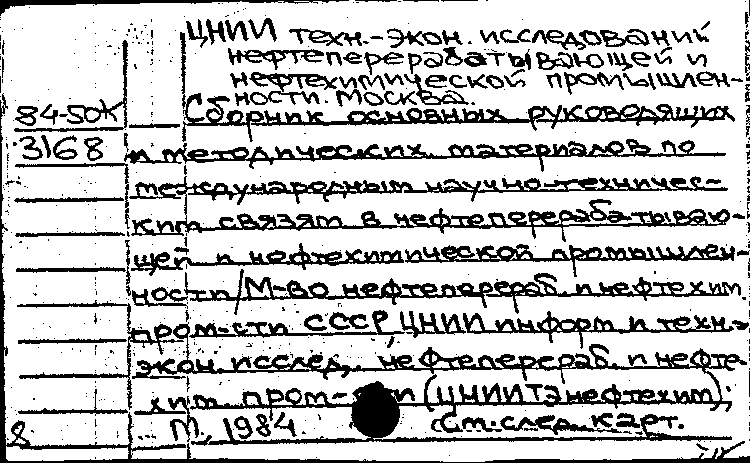 ЦНИИ техн.-экон. исследований
нефтеперерабатывающей и
нефтехимической промышлен-
ности. Москва.
84-50К Сборник основных руководящих
3168 и методических материалов по
международным научно-техничес-
ким связям в нефтеперерабатываю-
щей и нефтехимической промышлен-
ности/М-во нефтеперераб. и нефтехим.
пром-сти СССР, ЦНИИ информ. и техн.-
экон. исслед. нефтеперераб. и нефте-
хим. пром-сти (ЦНИИТЭнефтехим);
8 М., 1984. См. след. карт.